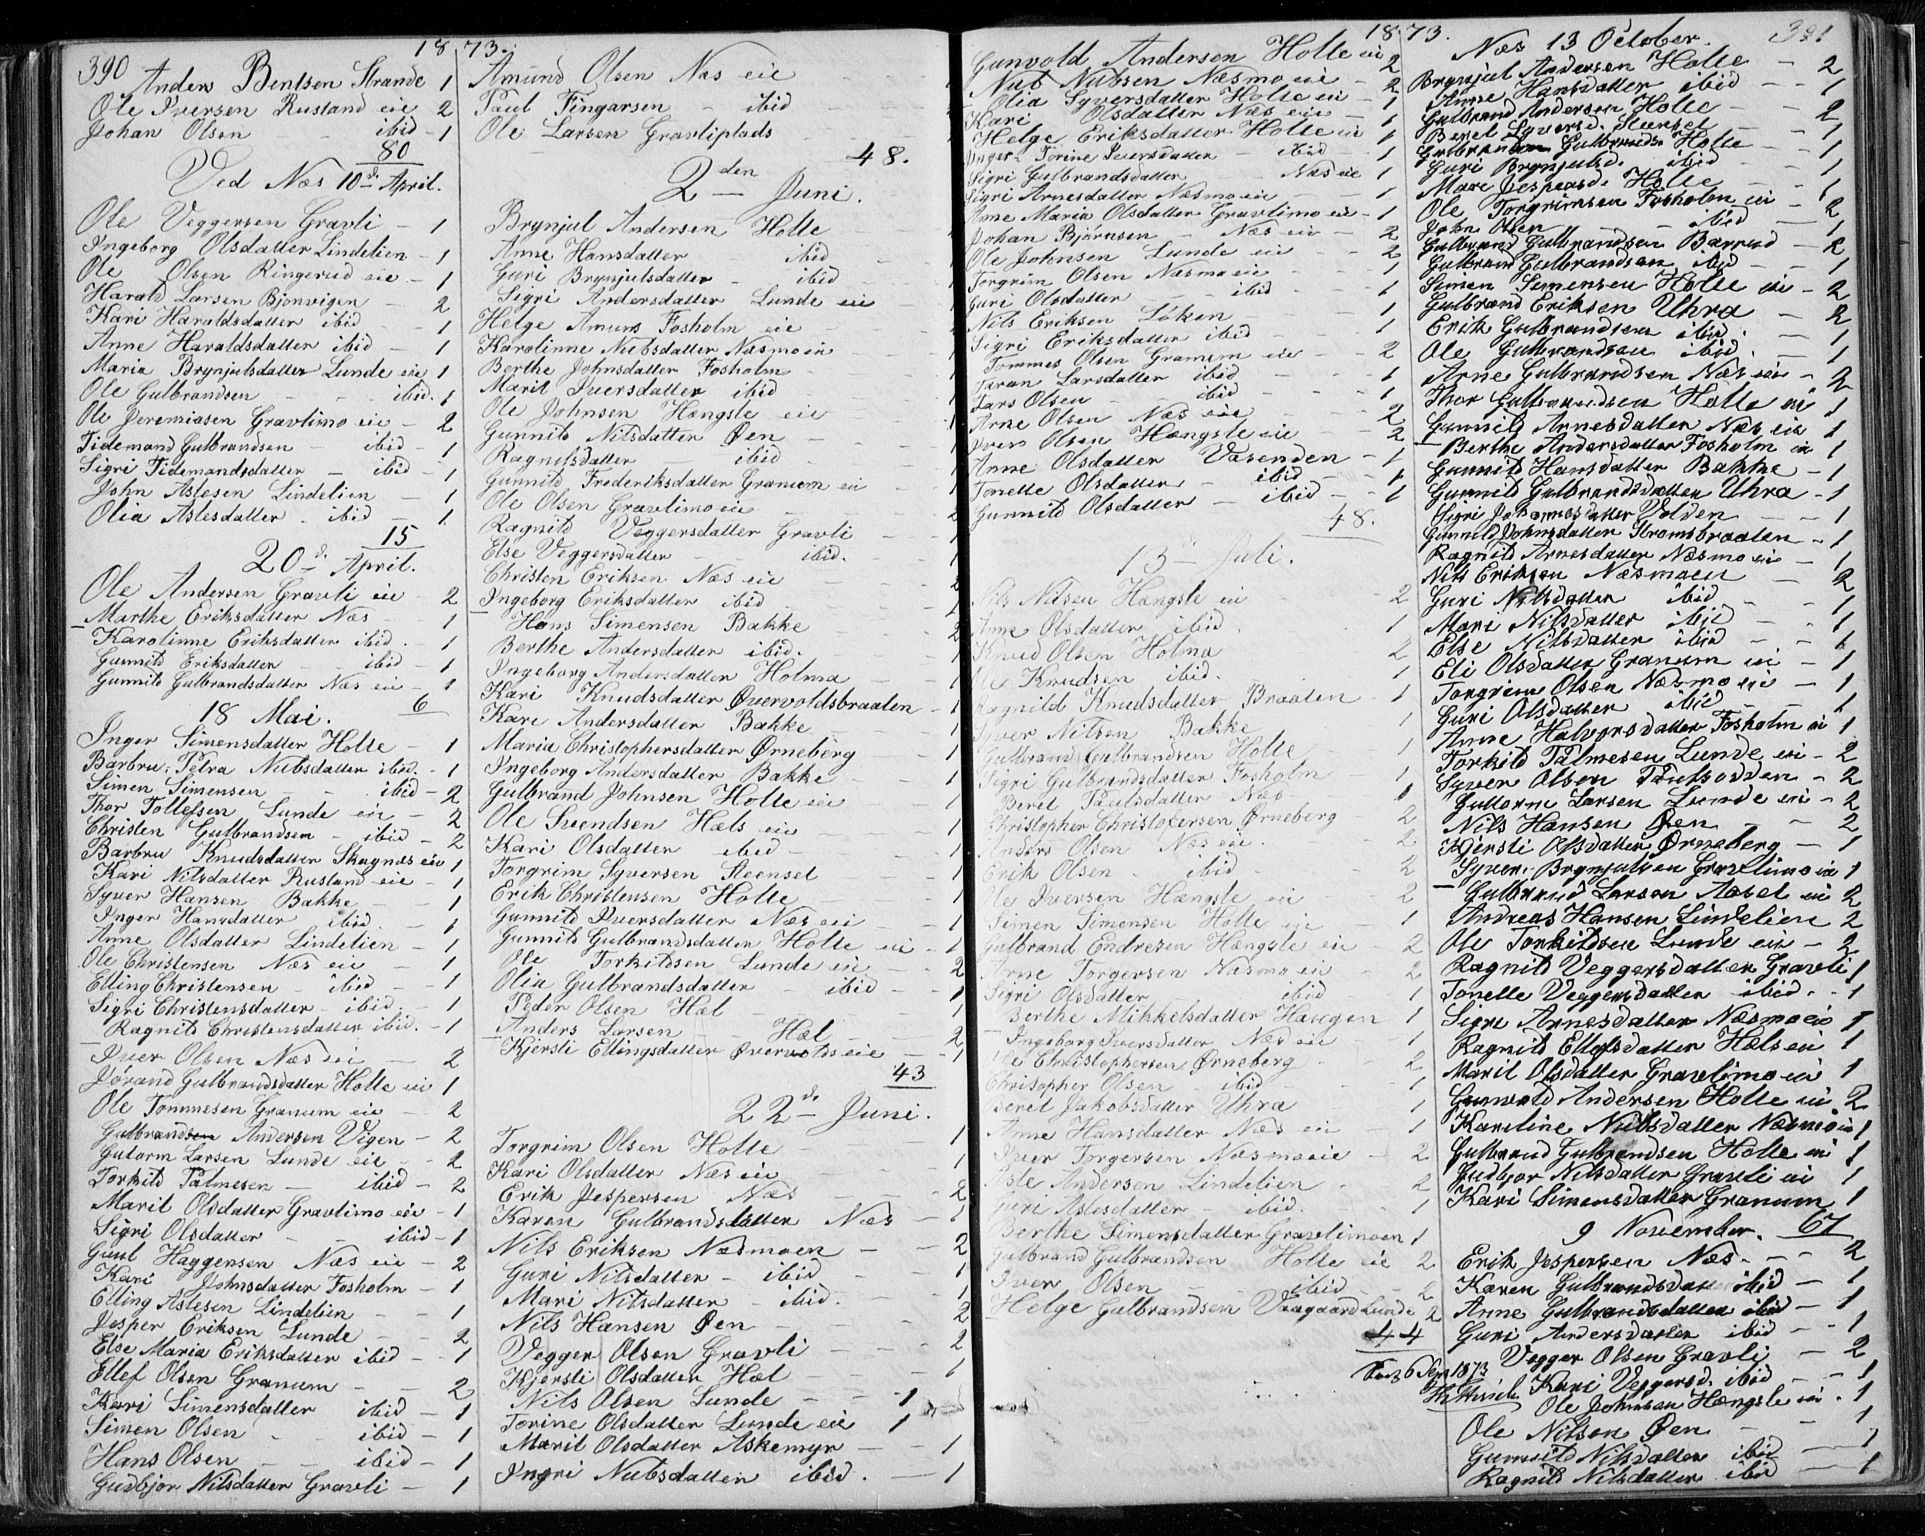 390
1873.
Anders Bentsen Strande 1
Ole Iversen Rustand eie 2
Johan Olsen ibid - 1
80
Ved Næs 10d April.
Ole Veggersen Gravli - 1
Ingeborg Olsdatter Lindelien - 1
Ole Olsen Ringerud eie - 1
Harald Larsen Bjonvigen - 2
Kari Haraldsdatter ibid - 1
Anne Haraldsdatter ibid - 1
Maria Brynjulsdatter Lunde eie 1
Ole Gulbrandsen - - ibid. 1
Ole Jeremiasen Gravlimo eie - 2
Tidemand Gulbrandsen ibid - 1
Sigri Tidemandsdatter - ibid - 1
John Aslesen Lindelien - 1
Olia Aslesdatter . ibid - 1
15
20d April.
Ole Andersen Gravli eie - 2
Marthe Eriksdatter Næs - 1
Karolinne Eriksdatter ibid. 1
Gunnild Eriksdatter - ibid - 1
Gunnild Gulbrandsdatter Næs eie - 1
6
18 Mai.
Inger Simensdatter Holte - 1
Barbru Petra Nubsdatter ibid. - 1
Simen Simensen - - ibid - 2
Thor Tollefsen Lunde eie - 2
Christen Gulbrandsen - ibid - 2
Barbru Knudsdatter Skagnæs eie 1
Kari Nilsdatter Rustand eie - 1
Syver Hansen Bakke - - 1
Inger Hansdatter ibid. - 1
Anne Olsdatter Lindelien - 1
Ole Christensen Næs eie - 1
Elling Christensen - ibid - 1
Sigri Christensdatter - ibid. - 1
Ragnild Christensdatter ibid. - 1
Iver Olsen Næs eie - 2
Jørand Gulbrandsdatter Holte eie 1
Ole Tommesen Granum eie - 2
Gulbrandsen Andersen Vigen - 2
Gutorm Larsen Lunde eie - 2
Torkild Palmesen - ibid - 2
Marit Olsdatter Gravlimo eie - 1
Sigri Olsdatter - - ibid - 1
Haggensen Næs eie - 2
Kari Johnsdatter Fosholm - 1
Elling Aslesen Lindelien - 1
Jesper Eriksen Lunde - - 2
Else Maria Eriksdatter ibid - 1
Ellef Olsen Granum - - 2
Kari Simensdatter ibid - 1
Simen Olsen - - ibid - 1
Hans Olsen - - ibid - 1
Gudbjor Nilsdatter Gravli - 1
Amund Olsen Næs eie
Paul Fingarsen - ibid
Ole Larsen Gravliplads
48.
2den Juni.
Brynjul Andersen Holte
Anne Hansdatter ibid
Guri Brynjulsdatter - ibid
Sigri Andersdatter Lunde eie
Helge Amuns Fosholm eie
Karolinne Nubsdatter Næsmoein
Berthe Johnsdatter Fosholm
Marit Iversdatter ibid
Ole Johnsen Hængsle eie
Gunnild Nilsdatter Øen
Ragnilsdatter ibid
Gunnild Frederiksdatter Granum eie
Ole Olsen Gravlimo eie
Ragnild Veggersdatter Gravli - 1
Else Veggersdatter ibid. - 1
Christen Eriksen Næs eie - 2
Ingeborg Eriksdatter ibid - 1
Hans Simensen Bakke 2
Berthe Andersdatter ibid. 1
Ingeborg Andersdatter Holma - 1
Kari Knudsdatter Øvervoldsbraaten - 1
Kari Andersdatter Bakke - 1
Maria Christophersdatter Ørneberg 1
Ingeborg Andersdatter Bakke - 1
Gulbrand Johnsen Holte eie 1
Ole Svendsen Hæls eie 1
Kari Olsdatter ibid - 1
Torgrim Syversen Steensel 1
Erik Christensen Holte 1
Gunnild Iversdatter Næs eie - 1
Gunnild Gulbrandsdatter Holte eie - 1
Ole Torkildsen Lunde eie - 2
Olia Gulbrandsdatter - ibid - 1
Peder Olsen Hæl - 1
Anders Larsen Hæl - 2
Kjersti Ellingsdatter Øvervolds eie - 1
43
22de Juni.
Torgrim Olsen Holte 1
Kari Olsdatter Næs eie 1
Erik Jespersen Næs 2
Karen Gulbrandsdatter Næs - 1
Nils Eriksen Næsmoen - 2
Guri Nilsdatter - ibid - 1
Mari Nilsdatter ibid. 1
Nils Hansen Øen - - 2
Vegger Olsen Gravli - 2
Kjersti Olsdatter Hæl - 1
Nils Olsen Lunde - 1
Torine Olsdatter Lunde eie 1
Marit Olsdatter Askemyr - 1
Ingri Nubsdatter ibid. - 1
1873.
391
Gunvold Andersen Holte eie 2
Nub Nubsen Næsmo eie - 2
Olia Syversdatter Holte eie - 1
Kari Olsdatter Næs eie - 1
Helge Eriksdatter Holte eie 1
Inger Torine Iversdatter - ibid - 1
Sigri Gulbrandsdatter Næs eie 1
Sigri Arnesdatter Næsmo eie 1
Anne Maria Olsdatter Gravlimo eie - 1
Johan Bjørnsen - Næs eie - 2
Ole Johnsen Lunde eie - 2
Torgrim Olsen Næsmo eie - 1
Guri Olsdatter - - ibid - 1
Nils Eriksen Løken - - 1
Sigri Eriksdatter ibid - 1
Tommes Olsen Granum eie - 2
Taran Larsdatter ibid - 1
Lars Olsen - ibid - 1
Arne Olsen Næs eie - 2
Iver Olsen Hængsle eie - 2
Anne Olsdatter Vasenden - 1
Tonette Olsdatter - ibid - 1
Gunnild Olsdatter - ibid - 1
48.
13 Juli.
Nils Nilsen Hængsle eie 2
Anne Olsdatter ibid. 1
Knud Olsen Holma 2
Ole Knudsen ibid. 1
Ragnild Knudsdatter Braaten 1
Syver Nilsen Bakke 1
Gulbrand Gulbrandsen Holte 1
Sigri Gulbrandsdatter Fosholm 1
Beret Paulsdatter Næs 1
Christopher Christofersen Ørneberg - 2
Anders Olsen Næs eie. 2
Erik Olsen . ibid. 2
Ole Iversen Hængsle eie 2
Simen Simensen Holte eie 1
Gulbrand Endresen Hængsle eie 2
Arne Torgersen Næsmo eie - 2
Sigri Olsdatter - ibid 1
Berthe Mikkelsdatter Haugen 1
Ingeborg Iversdatter Næs eie - 1
Ole Christophersen Ørneberg - 2
Christopher Olsen - ibid - 1
Beret Jakobsdatter Uhra 1
Anne Hansdatter Næs eie - 1
Iver Torgersen Næsmo eie - 2
Asle Andersen Lindelien - 2
Guri Aslesdatter - ibid. 1
Berthe Simensdatter Gravlimoen 1
Gulbrand Gulbrandsen Holte eie 2
Iver Olsen - ibid - 2
Helge Gulbrandsen Vaagaard Lunde 2
44
1873
Næs 13 October.
Brynjul Andersen Holte - 2
Anne Hansdatter ibid - 1
Gulbrand Andersen Holte - 2
Beret Syversd. Steensel - 1
Gulbrandsen Gulbrands. Holte - 1
Guri Brynjulsd. ibid - 1
Mari Jespersd. Holte - 1
Ole Torgrimsen Fosholm eie - 2
John Olsen - - ibid - 1
Gulbrand Gulbrandsen Barrud - 2
Gulbrand Gulbrandsen ibid - 1
Simen Simensen Holte eie - 2
Gulbrand Eriksen Uhra - 2
Erik Gulbrandsen ibid. - 1
Ole Gulbrandsen ibid. - 1
Arne Gulbrandsen Næs eie - 2
Thor Gulbrandsen Holte eie 1
Gunnild Arnesdatter Næs eie 1
Berthe Andersdatter Fosholm ein 1
Gunnild Hansdatter Bakke - 1
Gunnild Gulbrandsdatter Uhra - 1
Sigri datter Volden - 1
Gunnild Johnsdatter Stromsbraaten - 1
Ragnild Arnesdatter Næsmo eie - 1
Nils Eriksen Næsmoen 2
Guri Nilsdatter ibid - 1
Mari Nilsdatter ibid - 1
Else Nilsdatter ibid - 1
Eli Olsdatter Granum eie - 1
Torgrim Olsen Næsmo eie - 1
Guri Olsdatter ibid - 1
Anne Halvorsdatter Fosholm ei 1
Torkild Palmesen Lunde eie - 2
Syver Olsen - 2
Guttorm Larsen Lunde eie - 2
Nils Hansen Øen - - 2
Kjersti Olsdatter Ørneberg - 1
Syver Brynjulsen Gravlimo ein 1
Gulbrand Larsen Aasel ein 2
Andreas Hansen Lindelien 2
Ole Torkildsen Lunde eie - 2
Ragnild Veggersdatter Gravli 1
Tonette Veggersdatter ibid. - 1
Sigri Arnesdatter Næsmoein 1
Ragnild Ellefsdatter Hæls eie 1
Marit Olsdatter Gravlimo eie 1
Gunvold Andersen Holte eie 2
Karoline Nubsdatter Næsmoein 1
Gulbrand Gulbrandsen Holte eie 1
Gudbjor Nilsdatter Gravli eie 1
Kari Simensdatter Granum 1
67
9 November.
Erik Jespersen Næs - - 2
Karen Gulbrandsdatter ibid - 1
Anne Gulbrandsdatter ibid - 1
Guri Andersdatter ibid - 1
Vegger Olsen Gravli - 2
Kari Veggersd. ibid - 1
Ole Johnsen Hængsle eie . 1
Ole Nilsen Øen - 1
Gunnild Nilsdatter ibid - 1
Ragnild Nilsdatter ibid - 1